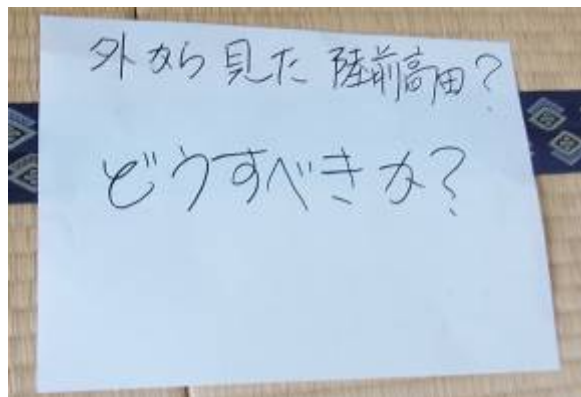 外から見た 陸前高田?
どうすべきか?